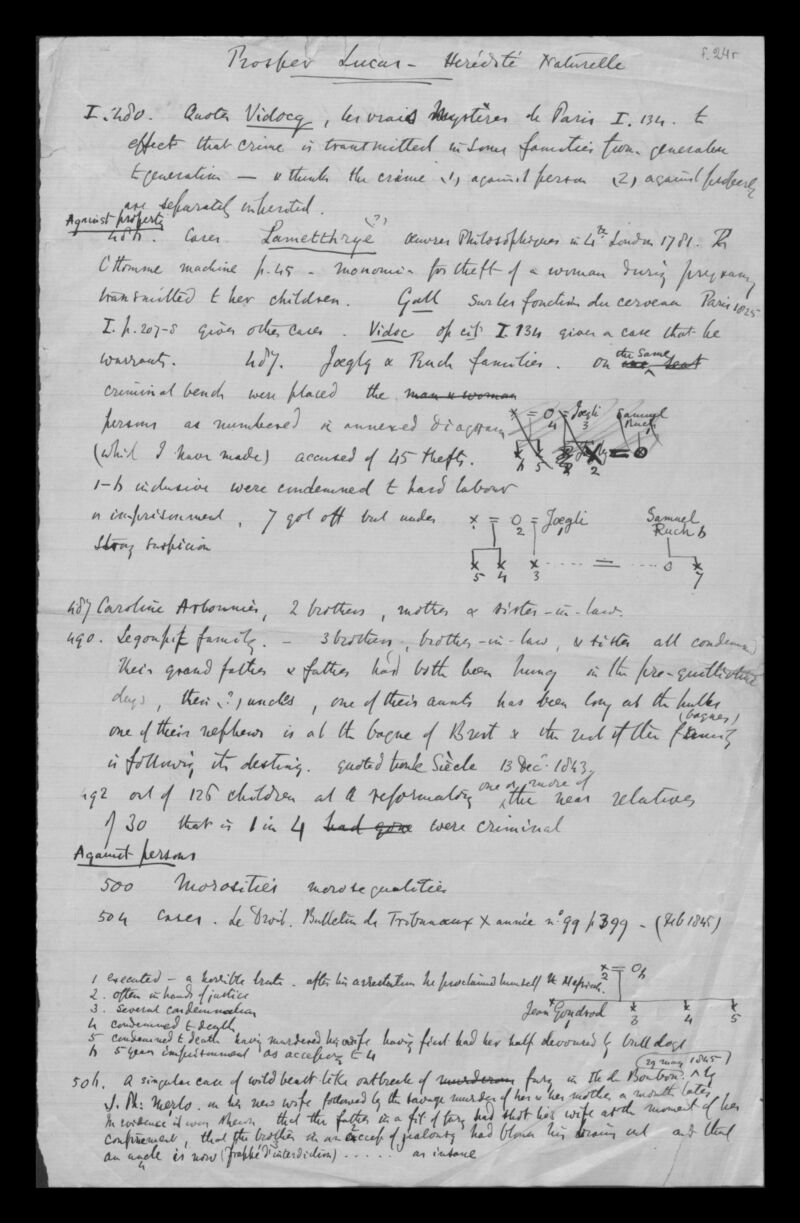 f. 24r
Prosper Lucas – Herédité Naturelle
I. 480. Quotes Vidocq, les vrais Mystères de Paris I. 134. to
effect that crime is transmitted in some families from generation
to generation — & thinks the crime (1) against person (2) against property
are separately inherited.
Against property
486. Cases. Lametthrye (?) Œuvres Philosophiques in 4to London 1781.
L'Homme machine p. 45 – monomia for theft of a woman during pregnancy
transmitted to her children. Gall Sur les fonctions du cerveau Paris 1825
I. p. 207-8 gives other cases. Vidoc op cit I 134 gives a case that he
warrants. 487. Jœgly & Ruch families. On the same
criminal bench were placed the man & woman
persons as numbered in annexed diagram
(which I have made) accused of 45 thefts.
x = O = Jœgli Samuel Ruch
1–6 inclusive were condemned to hard labour
or imprisonment, 7 got off but under
strong suspicion
x = O = Jœgli Samuel
2 1 Ruch 6
x x x = O x
5 4 3 7
487 Caroline Arbonnies, 2 brothers, mother & sister-in-law.
490. Legoupif family. – 3 brothers, brother-in-law, & sister all condemned
their grand father & father had both been hung in the pre-guillotine
days, their (?) uncles, one of their aunts has been long at the hulks (bagnes)
one of their nephews is at the bagne of Brest & the rest of the family
is following its destiny. quoted from le Siècle 13 Dec. 1843.
492 out of 125 children at a reformatory one or more of the near relatives
of 30 that is 1 in 4 had gone were criminal
Against persons
500 Morosities morose qualities
504 Cases. Le Droit. Bulletin des Tribunaux X année no 99 p 399 – (Feb 1845)
x = O 6
2
Jean Goudrod x x x
1 3 4 5
1 executed – a horrible brute. after his arrestation he proclaimed himself the Messiah.
2. often in hands of justice
3. several condemnations
4 condemned to death
5 condemned to death having murdered his wife having first had her half devoured by bull dogs
6 5 years imprisonment as accessory to 4
506. A singular case of wild beast like outbreak of murderous fury in Ile de Bourbon (29 may 1845) by
J. Ph: Merlo. on his new wife followed by the savage murder of her & her mother a month later
In evidence it was shewn, that the father in a fit of fury had shot his wife at the moment of her
confinement, that the brother in an excess of jealousy had blown his brains out and that
an uncle is now (frappé d'interdiction) . . . . . as insane